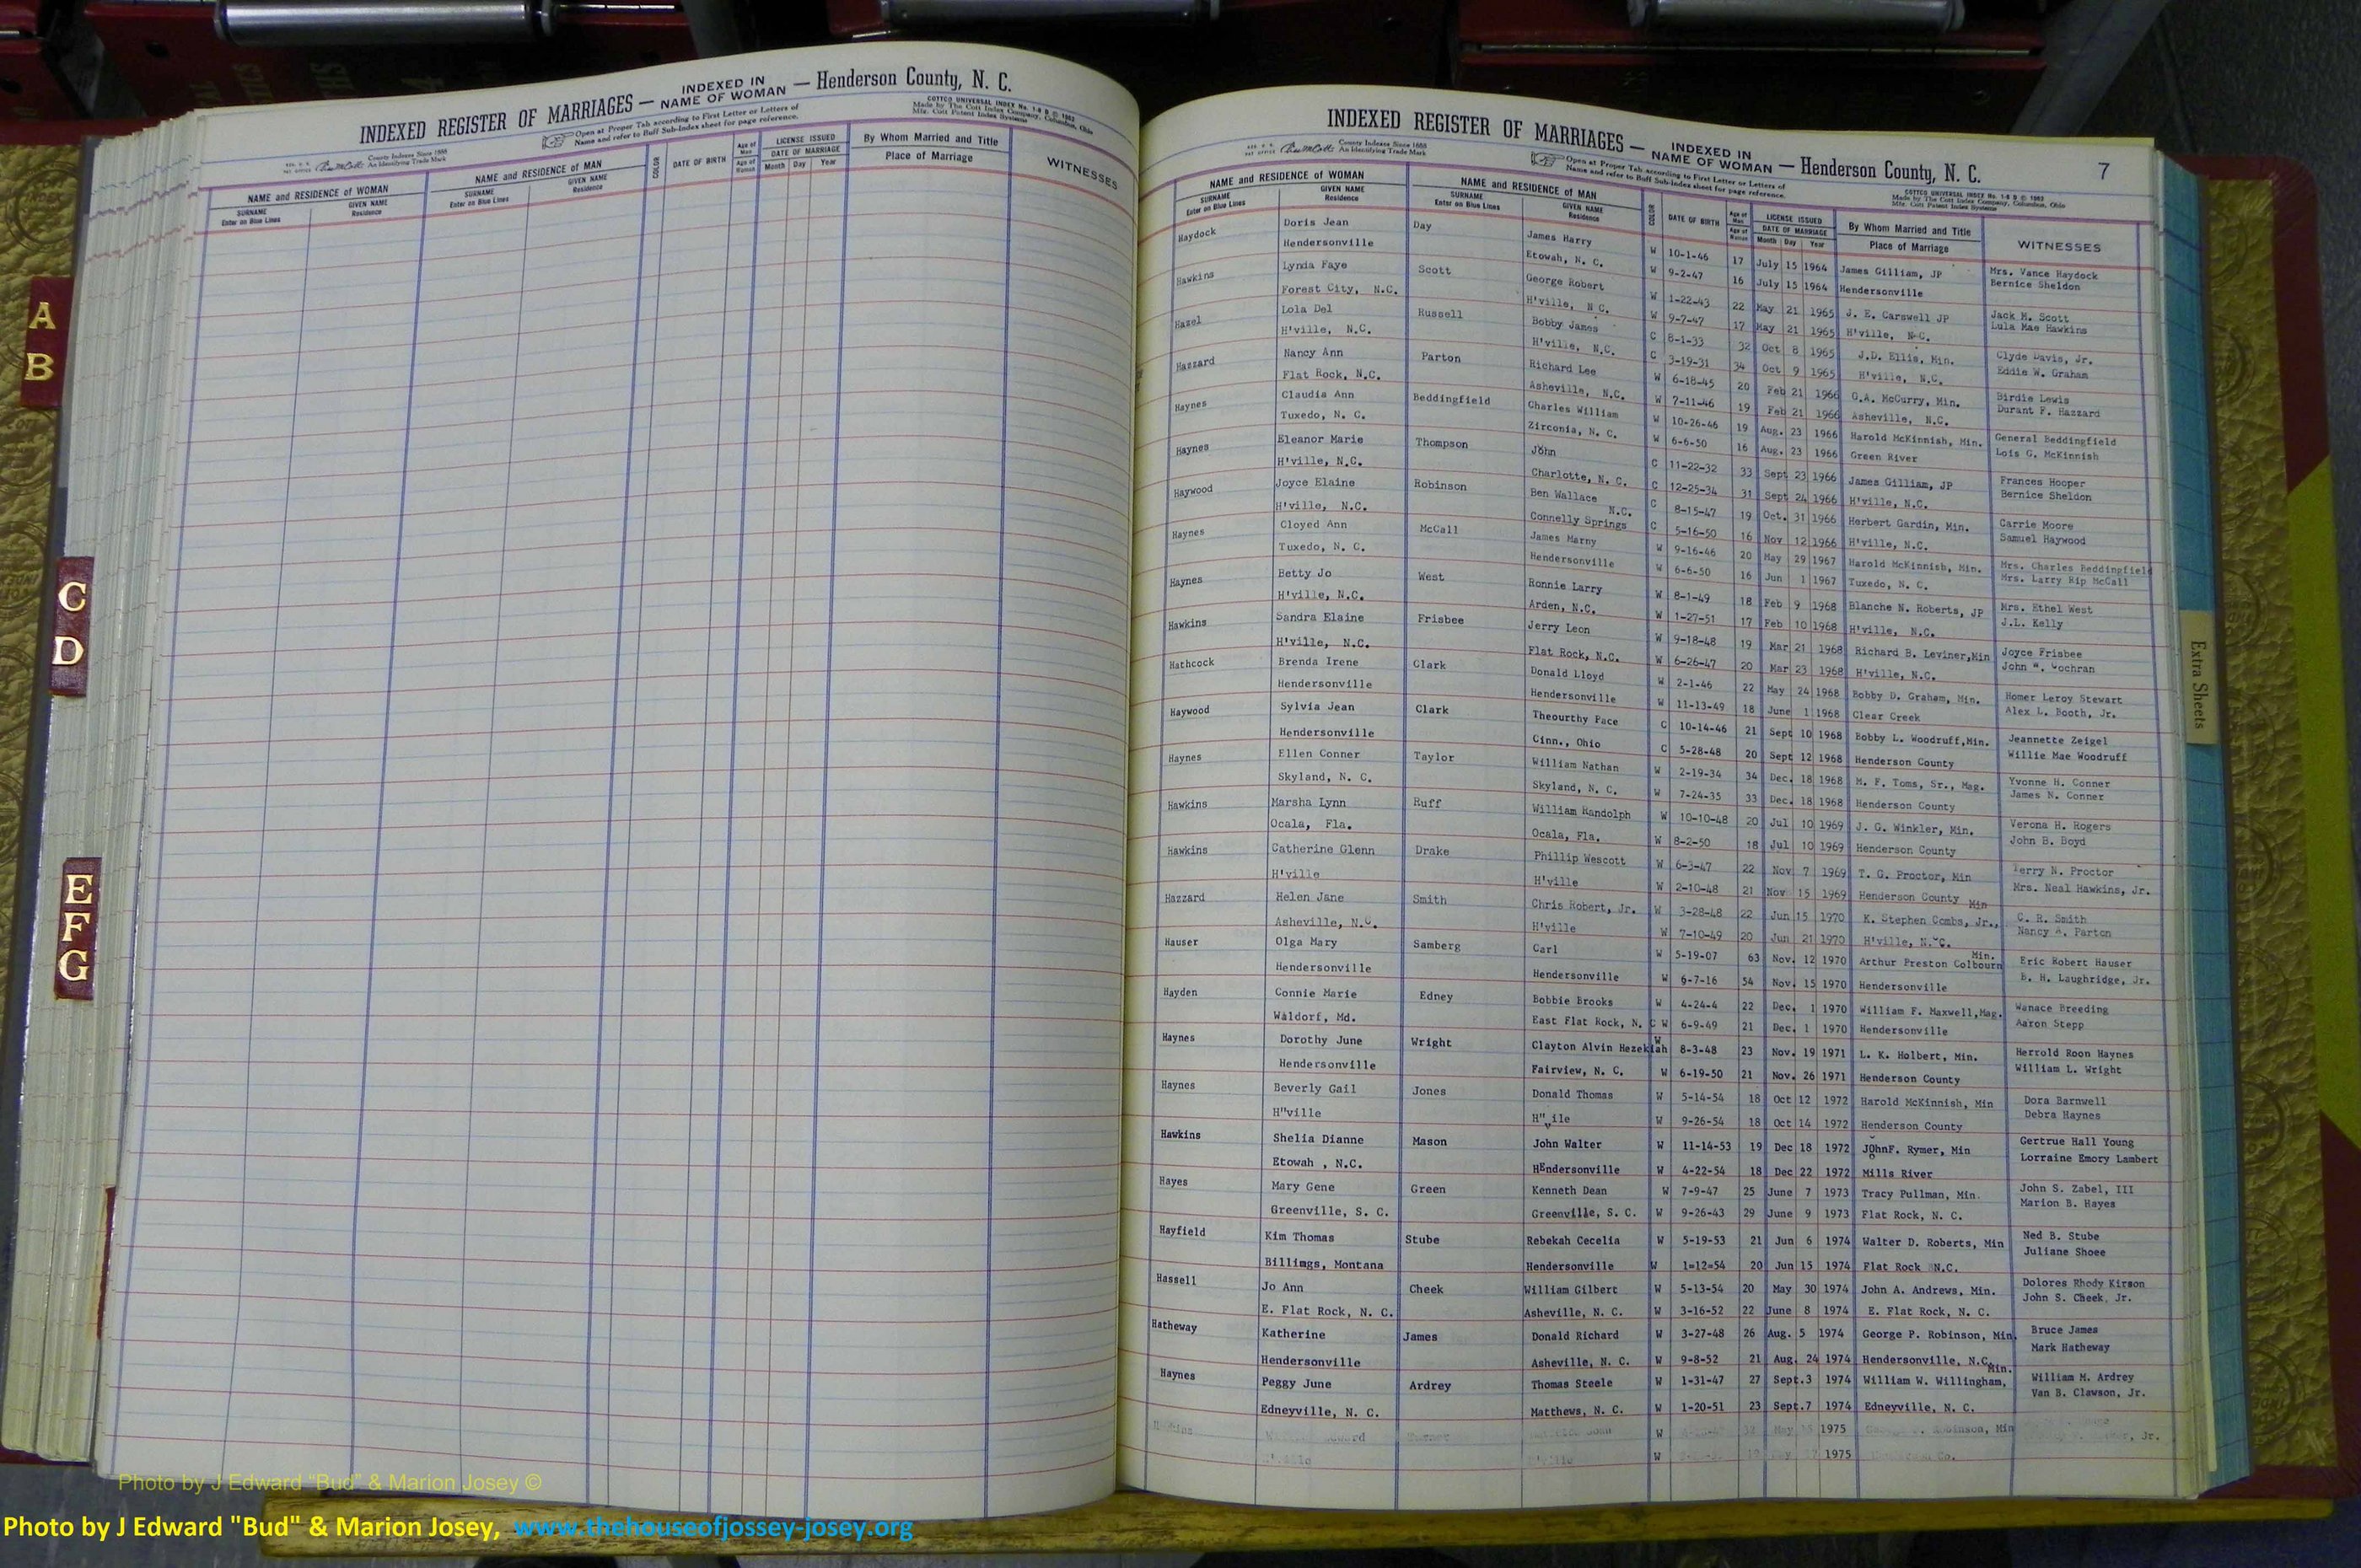 INDEXED REGISTER OF MARRIAGES — INDEXED IN NAME OF WOMAN — Henderson County, N. C.
County Indexes Since 1888
An Identifying Trade Mark
Open at Proper Tab according to First Letter or Letters of
Name and refer to Buff Sub-Index sheet for page reference.
COTTCO UNIVERSAL INDEX No. 1-8 D © 1962
Made by The Cott Index Company, Columbus, Ohio
Mfg. Cott Patent Index Systems
NAME and RESIDENCE of WOMAN NAME and RESIDENCE of MAN COLOR DATE OF BIRTH Age of Man LICENSE ISSUED By Whom Married and Title WITNESSES
SURNAME GIVEN NAME SURNAME GIVEN NAME Age of Woman DATE OF MARRIAGE Place of Marriage
Enter on Blue Lines Residence Enter on Blue Lines Residence Month Day Year
A
B
C
D
E
F
G
INDEXED REGISTER OF MARRIAGES — INDEXED IN NAME OF WOMAN — Henderson County, N. C. 7
County Indexes Since 1888
An Identifying Trade Mark
Open at Proper Tab according to First Letter or Letters of
Name and refer to Buff Sub-Index sheet for page reference.
COTTCO UNIVERSAL INDEX No. 1-8 D © 1962
Made by The Cott Index Company, Columbus, Ohio
Mfg. Cott Patent Index Systems
NAME and RESIDENCE of WOMAN NAME and RESIDENCE of MAN COLOR DATE OF BIRTH Age of Man LICENSE ISSUED By Whom Married and Title WITNESSES
SURNAME GIVEN NAME SURNAME GIVEN NAME Age of Woman DATE OF MARRIAGE Place of Marriage
Enter on Blue Lines Residence Enter on Blue Lines Residence Month Day Year
Haydock Doris Jean Day James Harry W 10-1-46 17 July 15 1964 James Gilliam, JP Mrs. Vance Haydock
Hendersonville Etowah, N. C. W 9-2-47 16 July 15 1964 Hendersonville Bernice Sheldon
Hawkins Lynda Faye Scott George Robert W 1-22-43 22 May 21 1965 J. E. Carswell JP Jack M. Scott
Forest City, N.C. H'ville, N C. W 9-7-47 17 May 21 1965 H'ville, N.C. Lula Mae Hawkins
Hazel Lola Del Russell Bobby James C 8-1-33 32 Oct 8 1965 J.D. Ellis, Min. Clyde Davis, Jr.
H'ville, N.C. H'ville, N.C. C 3-19-31 34 Oct 9 1965 H'ville, N.C. Eddie W. Graham
Hazzard Nancy Ann Parton Richard Lee W 6-18-45 20 Feb 21 1966 G.A. McCurry, Min. Birdie Lewis
Flat Rock, N.C. Asheville, N.C. W 7-11-46 19 Feb 21 1966 Asheville, N.C. Durant F. Hazzard
Haynes Claudia Ann Beddingfield Charles William W 10-26-46 19 Aug. 23 1966 Harold McKinnish, Min. General Beddingfield
Tuxedo, N. C. Zirconia, N. C. W 6-6-50 16 Aug. 23 1966 Green River Lois G. McKinnish
Haynes Eleanor Marie Thompson John C 11-22-32 33 Sept 23 1966 James Gilliam, JP Frances Hooper
H'ville, N.C. Charlotte, N. C. C 12-25-34 31 Sept 24 1966 H'ville, N.C. Bernice Sheldon
Haywood Joyce Elaine Robinson Ben Wallace C 8-15-47 19 Oct. 31 1966 Herbert Gardin, Min. Carrie Moore
H'ville, N.C. Connelly Springs N.C. C 5-16-50 16 Nov 12 1966 H'ville, N.C. Samuel Haywood
Haynes Cloyed Ann McCall James Marny W 9-16-46 20 May 29 1967 Harold McKinnish, Min. Mrs. Charles Beddingfield
Tuxedo, N. C. Hendersonville W 6-6-50 16 Jun 1 1967 Tuxedo, N. C. Mrs. Larry Rip McCall
Haynes Betty Jo West Ronnie Larry W 8-1-49 18 Feb 9 1968 Blanche N. Roberts, JP Mrs. Ethel West
H'ville, N.C. Arden, N.C. W 1-27-51 17 Feb 10 1968 H'ville, N.C. J.L. Kelly
Hawkins Sandra Elaine Frisbee Jerry Leon W 9-18-48 19 Mar 21 1968 Richard B. Leviner,Min Joyce Frisbee
H'ville, N.C. Flat Rock, N.C. W 6-26-47 20 Mar 23 1968 H'ville, N.C. John
Hathcock Brenda Irene Clark Donald Lloyd W 2-1-46 22 May 24 1968 Bobby D. Graham, Min. Homer Leroy Stewart
Hendersonville Hendersonville W 11-13-49 18 June 1 1968 Clear Creek Alex L. Booth, Jr.
Haywood Sylvia Jean Clark Theourthy Pace C 10-14-46 21 Sept 10 1968 Bobby L. Woodruff,Min. Jeannette Zeigel
Hendersonville Cinn., Ohio C 5-28-48 20 Sept 12 1968 Henderson County Willie Mae Woodruff
Haynes Ellen Conner Taylor William Nathan W 2-19-34 34 Dec. 18 1968 M. F. Toms, Sr., Mag. Yvonne H. Conner
Skyland, N. C. Skyland, N. C. W 7-24-35 33 Dec. 18 1968 Henderson County James N. Conner
Hawkins Marsha Lynn Ruff William Randolph W 10-10-48 20 Jul 10 1969 J. G. Winkler, Min. Verona H. Rogers
Ocala, Fla. Ocala, Fla. W 8-2-50 18 Jul 10 1969 Henderson County John B. Boyd
Hawkins Catherine Glenn Drake Phillip Wescott W 6-3-47 22 Nov 7 1969 T. G. Proctor, Min Terry N. Proctor
H'ville H'ville W 2-10-48 21 Nov 15 1969 Henderson County Mrs. Neal Hawkins, Jr.
Hazzard Helen Jane Smith Chris Robert, Jr. W 3-28-48 22 Jun 15 1970 K. Stephen Combs, Jr., Min C. R. Smith
Asheville, N.C. H'ville W 7-10-49 20 Jun 21 1970 H'ville, N.C. Nancy A. Parton
Hauser Olga Mary Samberg Carl W 5-19-07 63 Nov. 12 1970 Arthur Preston Colbourn Min. Eric Robert Hauser
Hendersonville Hendersonville W 6-7-16 54 Nov. 15 1970 Hendersonville B. H. Laughridge, Jr.
Hayden Connie Marie Edney Bobbie Brooks W 4-24-4 22 Dec. 1 1970 William F. Maxwell,Mag. Wanace Breeding
Waldorf, Md. East Flat Rock, N. C W 6-9-49 21 Dec. 1 1970 Hendersonville Aaron Stepp
Haynes Dorothy June Wright Clayton Alvin Hezekiah W 8-3-48 23 Nov. 19 1971 L. K. Holbert, Min. Herrold Roon Haynes
Hendersonville Fairview, N. C. W 6-19-50 21 Nov. 26 1971 Henderson County William L. Wright
Haynes Beverly Gail Jones Donald Thomas W 5-14-54 18 Oct 12 1972 Harold McKinnish, Min Dora Barnwell
H"ville H"vile W 9-26-54 18 Oct 14 1972 Henderson County Debra Haynes
Hawkins Shelia Dianne Mason John Walter W 11-14-53 19 Dec 18 1972 JohnF. Rymer, Min Gertrue Hall Young
Etowah , N.C. HEndersonville W 4-22-54 18 Dec 22 1972 Mills River Lorraine Emory Lambert
Hayes Mary Gene Green Kenneth Dean W 7-9-47 25 June 7 1973 Tracy Pullman, Min. John S. Zabel, III
Greenville, S. C. Greenville, S. C. W 9-26-43 29 June 9 1973 Flat Rock, N. C. Marion B. Hayes
Hayfield Kim Thomas Stube Rebekah Cecelia W 5-19-53 21 Jun 6 1974 Walter D. Roberts, Min Ned B. Stube
Billings, Montana Hendersonville W 1=12=54 20 Jun 15 1974 Flat Rock N.C. Juliane Shoee
Hassell Jo Ann Cheek William Gilbert W 5-13-54 20 May 30 1974 John A. Andrews, Min. Dolores Rhody Kirson
E. Flat Rock, N. C. Asheville, N. C. W 3-16-52 22 June 8 1974 E. Flat Rock, N. C. John S. Cheek, Jr.
Hatheway Katherine James Donald Richard W 3-27-48 26 Aug. 5 1974 George P. Robinson, Min. Bruce James
Hendersonville Asheville, N. C. W 9-8-52 21 Aug. 24 1974 Hendersonville, N.C. Mark Hatheway
Haynes Peggy June Ardrey Thomas Steele W 1-31-47 27 Sept.3 1974 William W. Willingham, Min. William M. Ardrey
Edneyville, N. C. Matthews, N. C. W 1-20-51 23 Sept.7 1974 Edneyville, N. C. Van B. Clawson, Jr.
W May 1975 Robinson, Min Jr.
W 1975 Co.
Extra Sheets
Photo by J Edward "Bud" & Marion Josey ©
Photo by J Edward "Bud" & Marion Josey, www.thehouseofjossey-josey.org